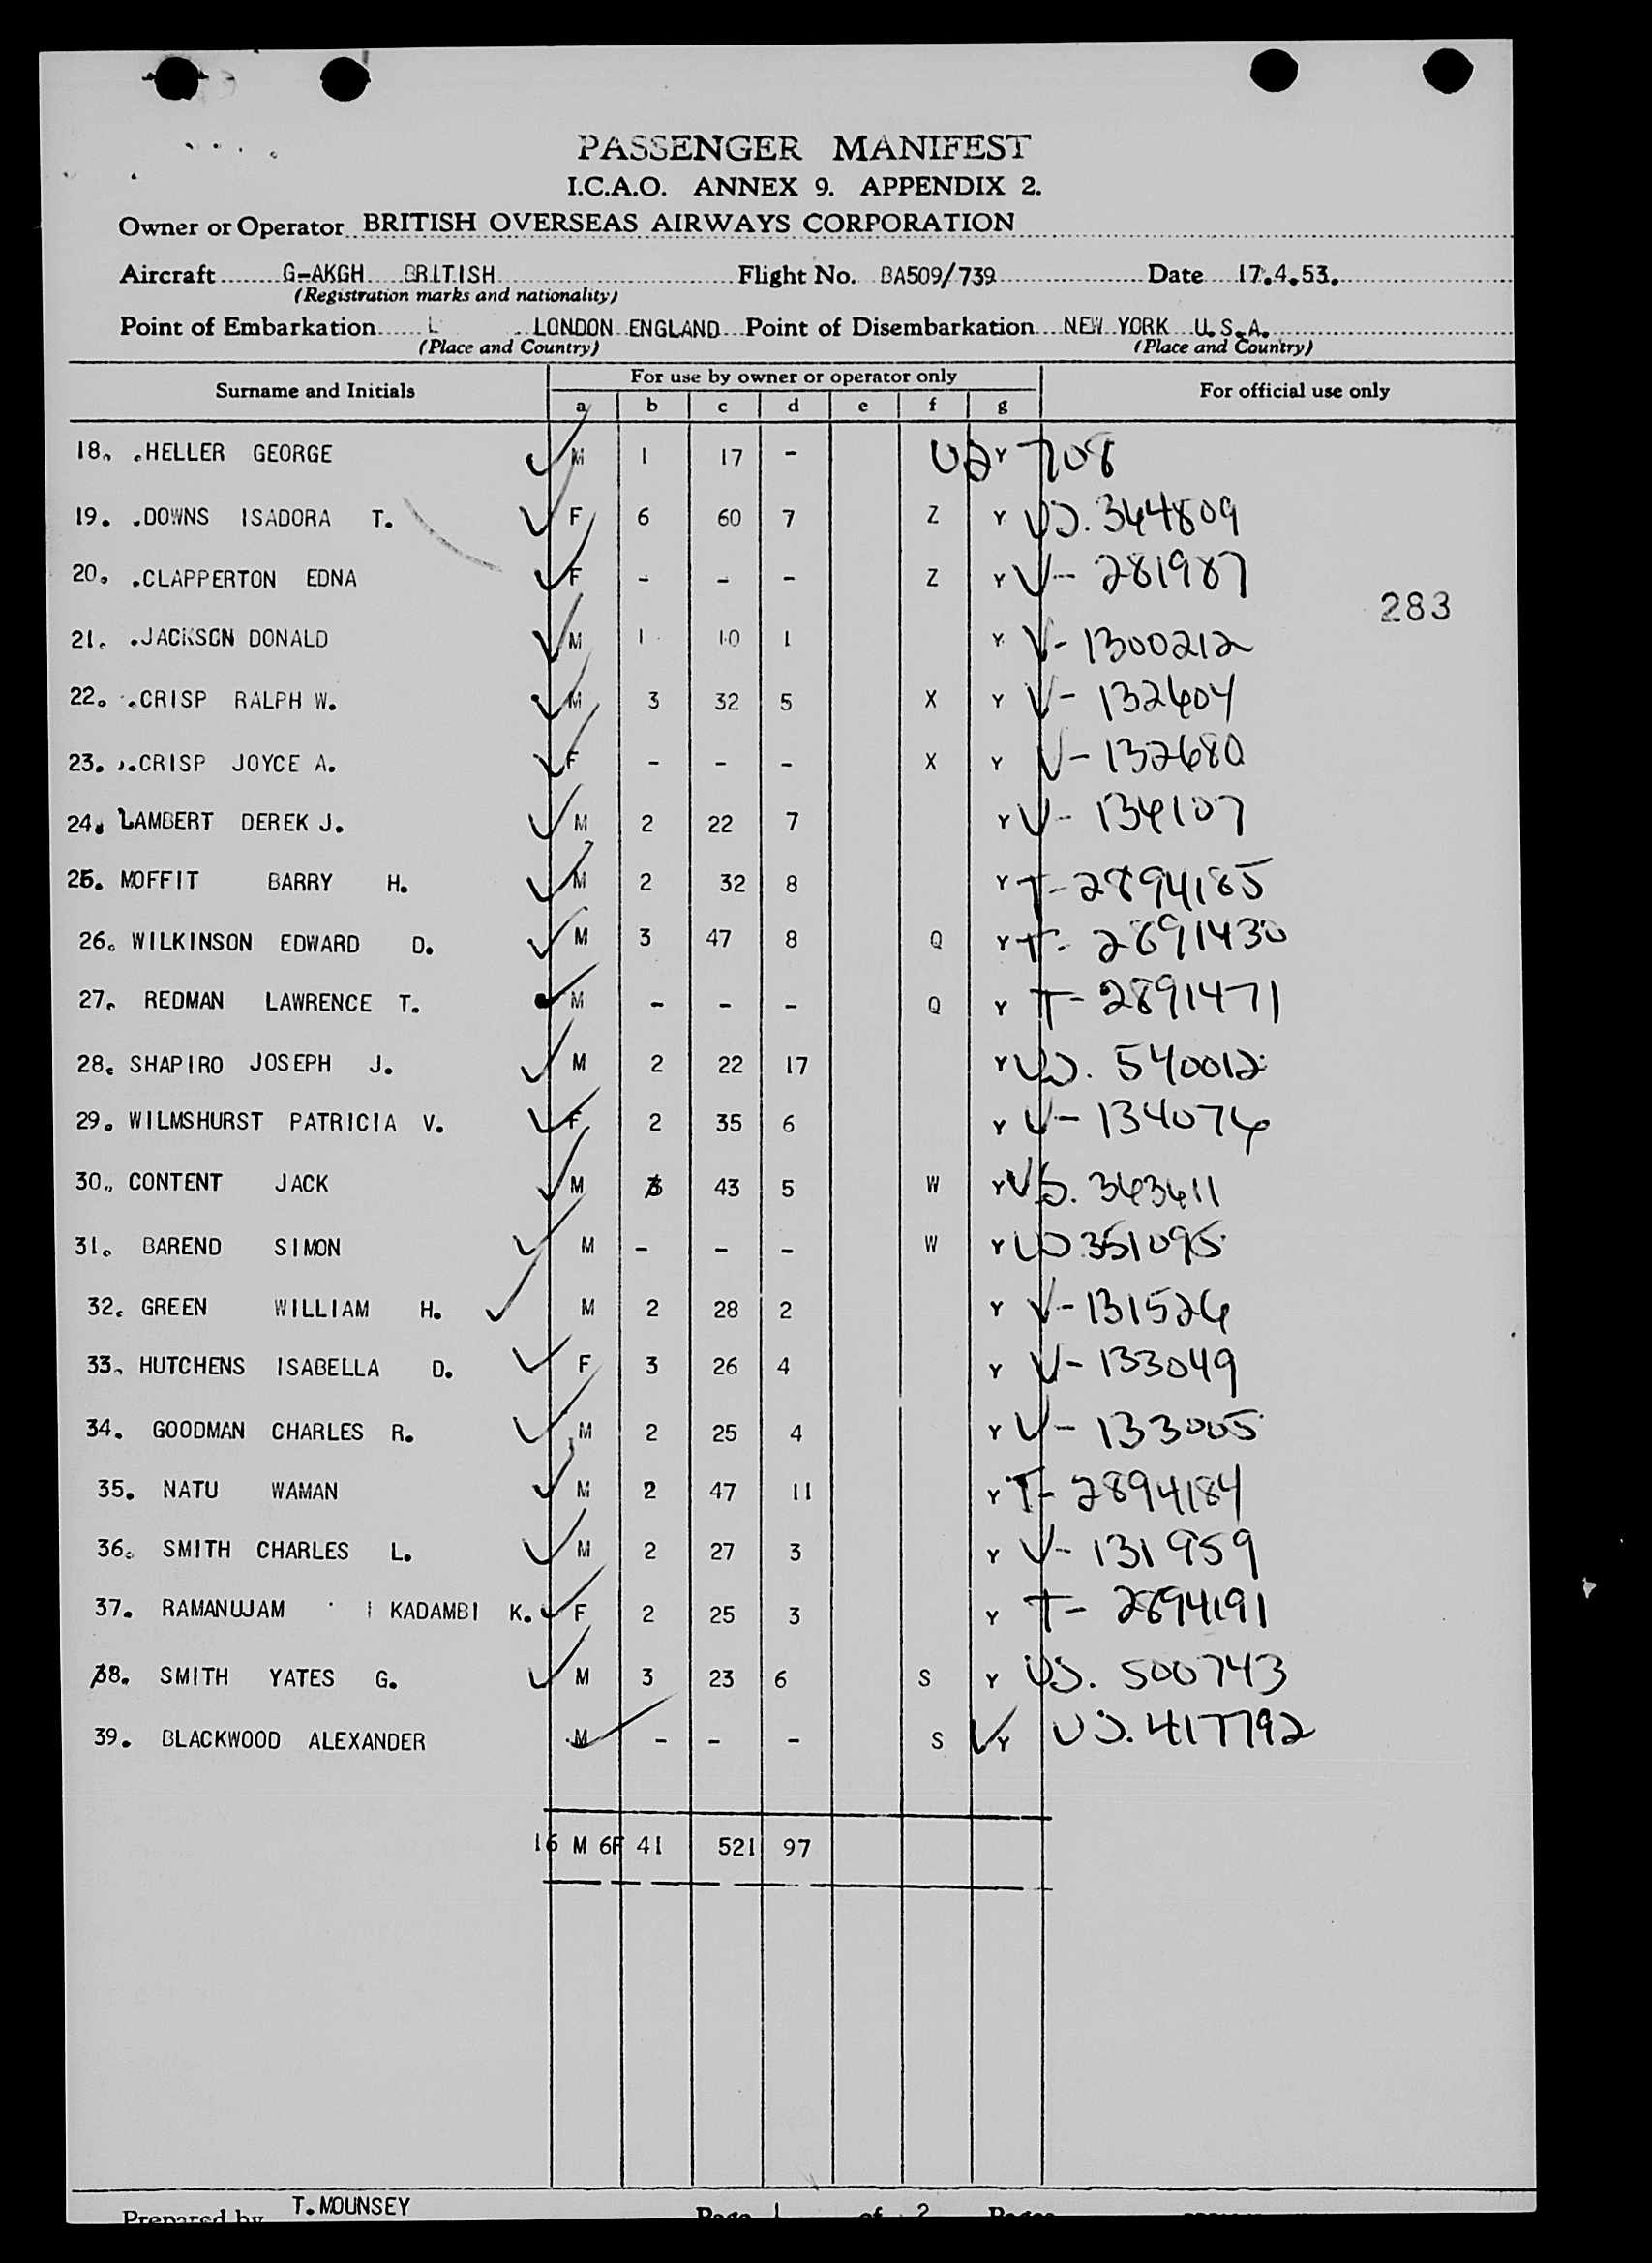 PASSENGER MANIFEST
I.C.A.O. ANNEX 9. APPENDIX 2.
Owner or Operator BRITISH OVERSEAS AIRWAYS CORPORATION
Aircraft G-AKGH BRITISH Flight No. BA509/739 Date 17.4.53.
(Registration marks and nationality)
Point of Embarkation L LONDON ENGLAND Point of Disembarkation NEW YORK U.S.A.
(Place and Country) (Place and Country)
Surname and Initials For use by owner or operator only For official use only
a b c d e f g
18. .HELLER GEORGE M 1 17 - Y 708
19. .DOWNS ISADORA T. F 6 60 7 Z Y US. 344809
20. .CLAPPERTON EDNA F - - - Z Y V- 281987
283
21. .JACKSON DONALD M 1 10 1 Y V- 1300212
22. .CRISP RALPH W. M 3 32 5 X Y V- 132604
23. .CRISP JOYCE A. F - - - X Y V- 132680
24. LAMBERT DEREK J. M 2 22 7 Y V- 134107
25. MOFFIT BARRY H. M 2 32 8 Y T-2894185
26. WILKINSON EDWARD D. M 3 47 8 Q Y T- 2891430
27. REDMAN LAWRENCE T. M - - - Q Y T- 2891471
28. SHAPIRO JOSEPH J. M 2 22 17 Y US. 540012
29. WILMSHURST PATRICIA V. F 2 35 6 Y V- 134076
30. CONTENT JACK M 3 43 5 W Y US. 343611
31. BAREND SIMON M - - - W Y US 351095
32. GREEN WILLIAM H. M 2 28 2 Y V-131526
33. HUTCHENS ISABELLA D. F 3 26 4 Y V- 133049
34. GOODMAN CHARLES R. M 2 25 4 Y V- 133005
35. NATU WAMAN M 2 47 11 Y T- 2894184
36. SMITH CHARLES L. M 2 27 3 Y V- 131959
37. RAMANUJAM KADAMBI K. F 2 25 3 Y T- 2894191
38. SMITH YATES G. M 3 23 6 S Y US. 500743
39. BLACKWOOD ALEXANDER M - - - S Y US. 417792
16 M 6F 41 521 97
Prepared by T. MOUNSEY Page 1 of 2 Pages